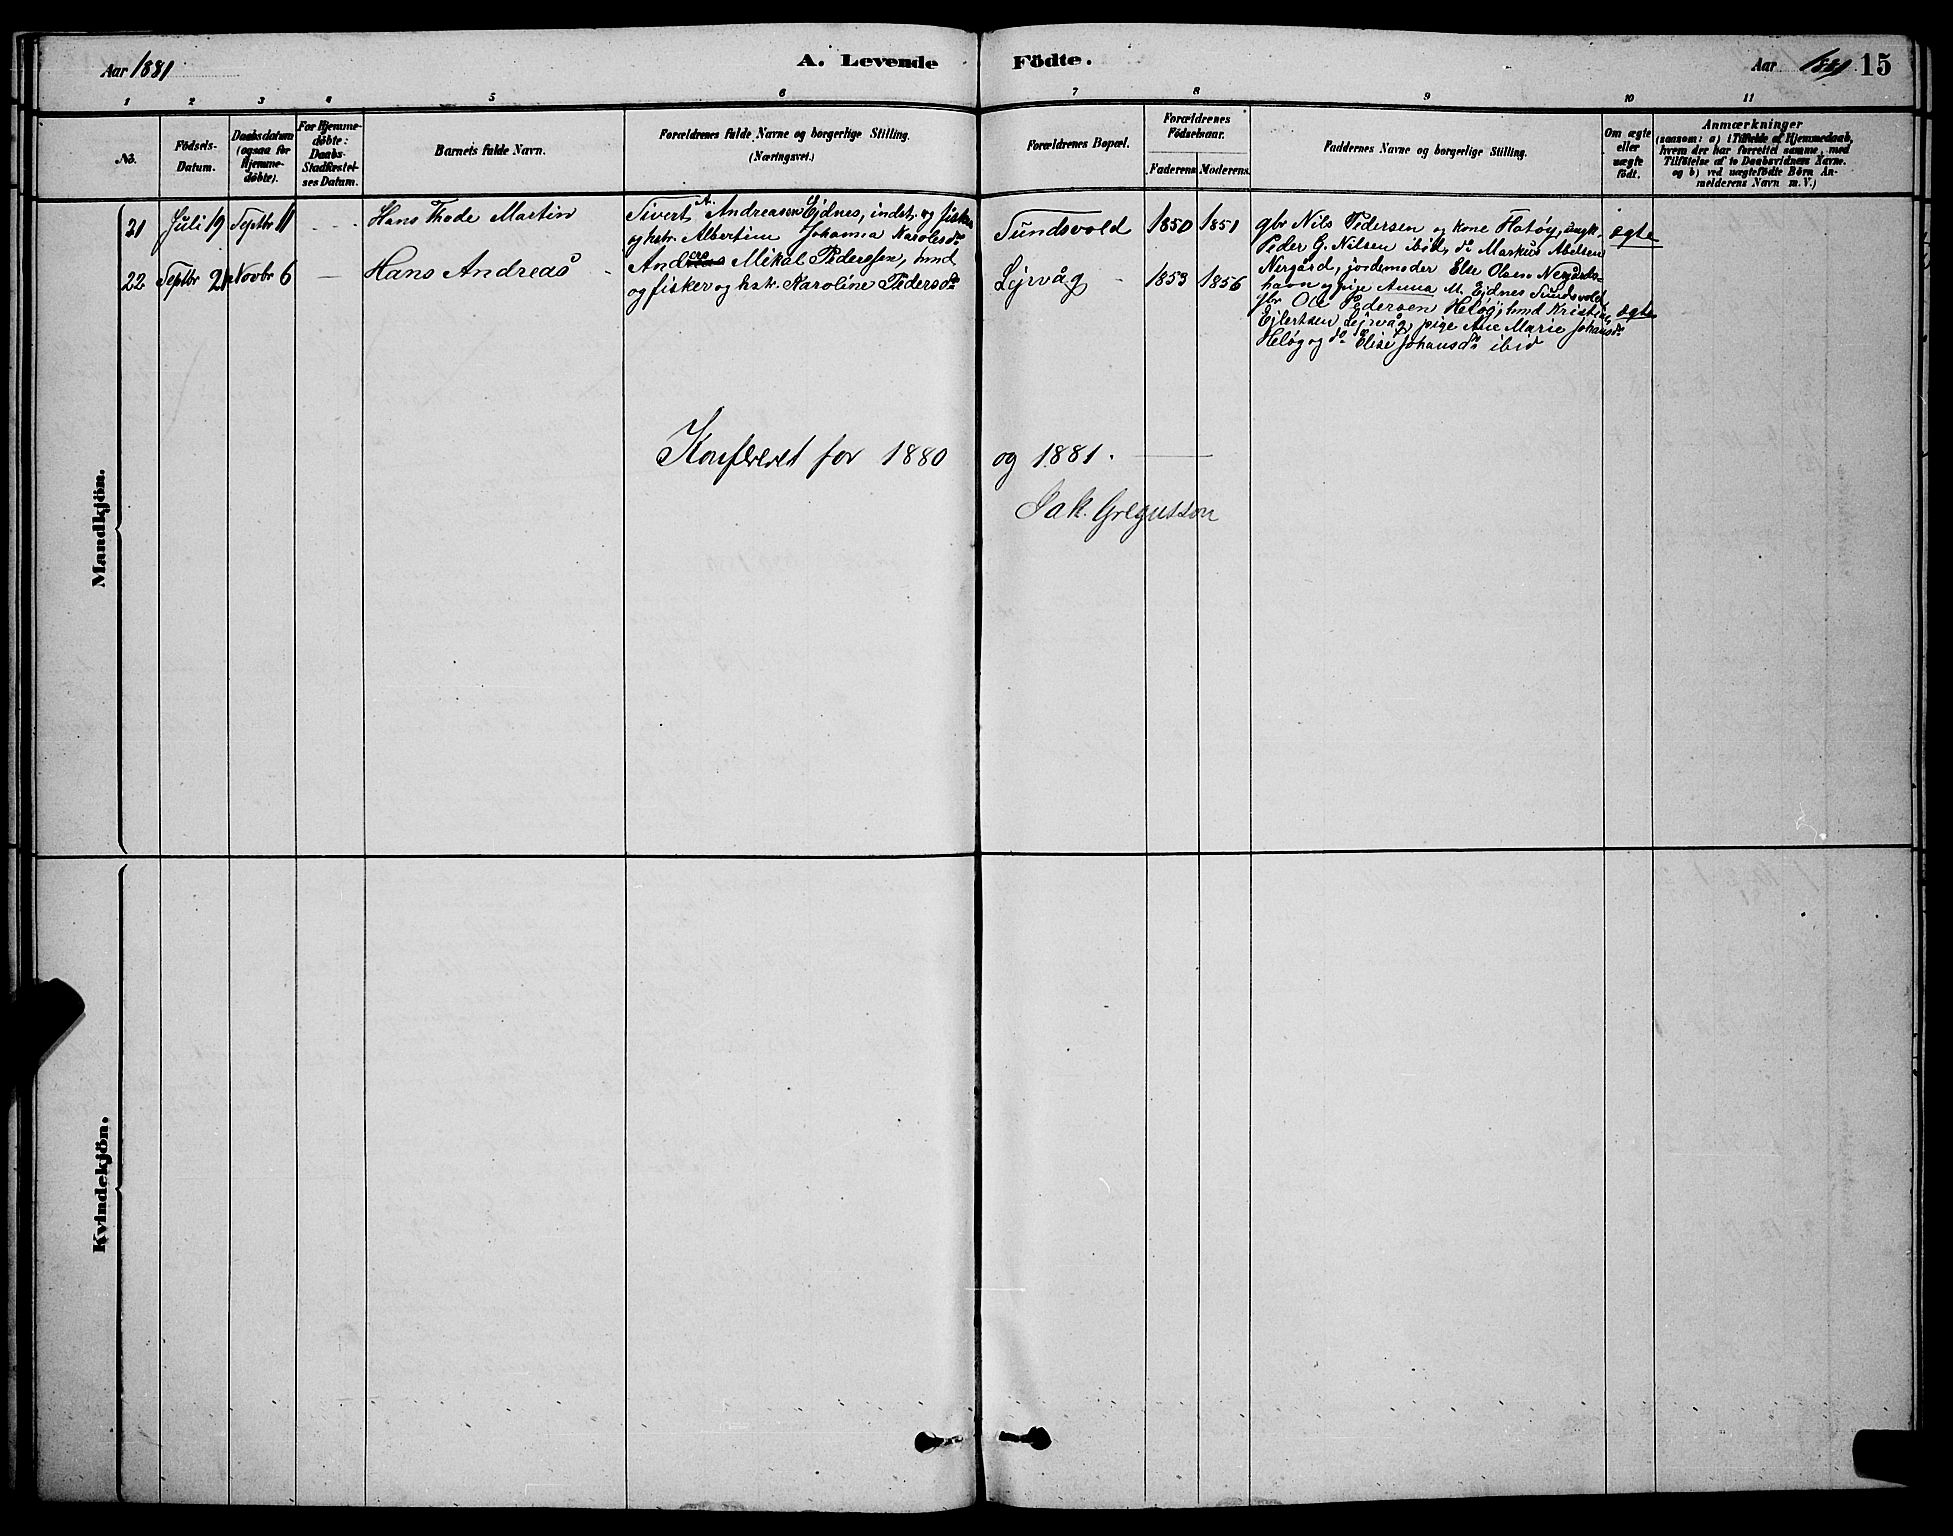 Aar 1881
A. Levende Födte.
Aar 1881
15
1 2 3 4 5 6 7 8 9 10 11
No.
Födsels-Datum.
Daabsdatum (ogsaa for Hjemme-döbte).
For Hjemme-döbte: Daabs-Stadfæstel-ses Datum.
Barnets fulde Navn.
Forældrenes fulde Navne og borgerlige Stilling.
(Næringsvei.)
Forældrenes Bopæl.
Forældrenes Födselsaar.
Faderens Moderens
Faddernes Navne og borgerlige Stilling.
Om ægte eller uægte födt.
Anmærkninger
(saasom: a) i Tilfælde af Hjemmedaab,
hvem der har forrettet samme, med
Tilföielse af to Daabsvidners Navne.
og b) ved uægtefödte Börn An-
melderens Navn m. V.)
Mandkjön.
21 Juli 19 Septbr 11 Hans Thode Martin
Sivert A. Andreasen Ejdnes, indst. og fisker
og hstr. Albertine Johanna Karolesdr
Sundsvold 1850 1851
gbr Nils Pedersen og kone Hatøy, ungk.
Peder G. Nilsen ibid, do Markus Abelsen
Nergård, jordemoder Else Olsen Nergårds-
havn og pige Anna M. Ejdnes Sundsvold
ægte
22 Septbr 21 Novbr 6 Hans Andreas
Andreas Mikal Pedersen, hmd
og fisker og hstr. Karoline Pedersdr
Lejrvåg 1853 1856
gbr Ole Pedersen Heløg, hmd Kristian
Ejlertsen Lejrvåg, pige Ane Marie Johansdr
Heløg og do Elise Johansdr ibid
ægte
Konfereret for 1880 og 1881.
Jak. Gregusson
Kvindekjön.